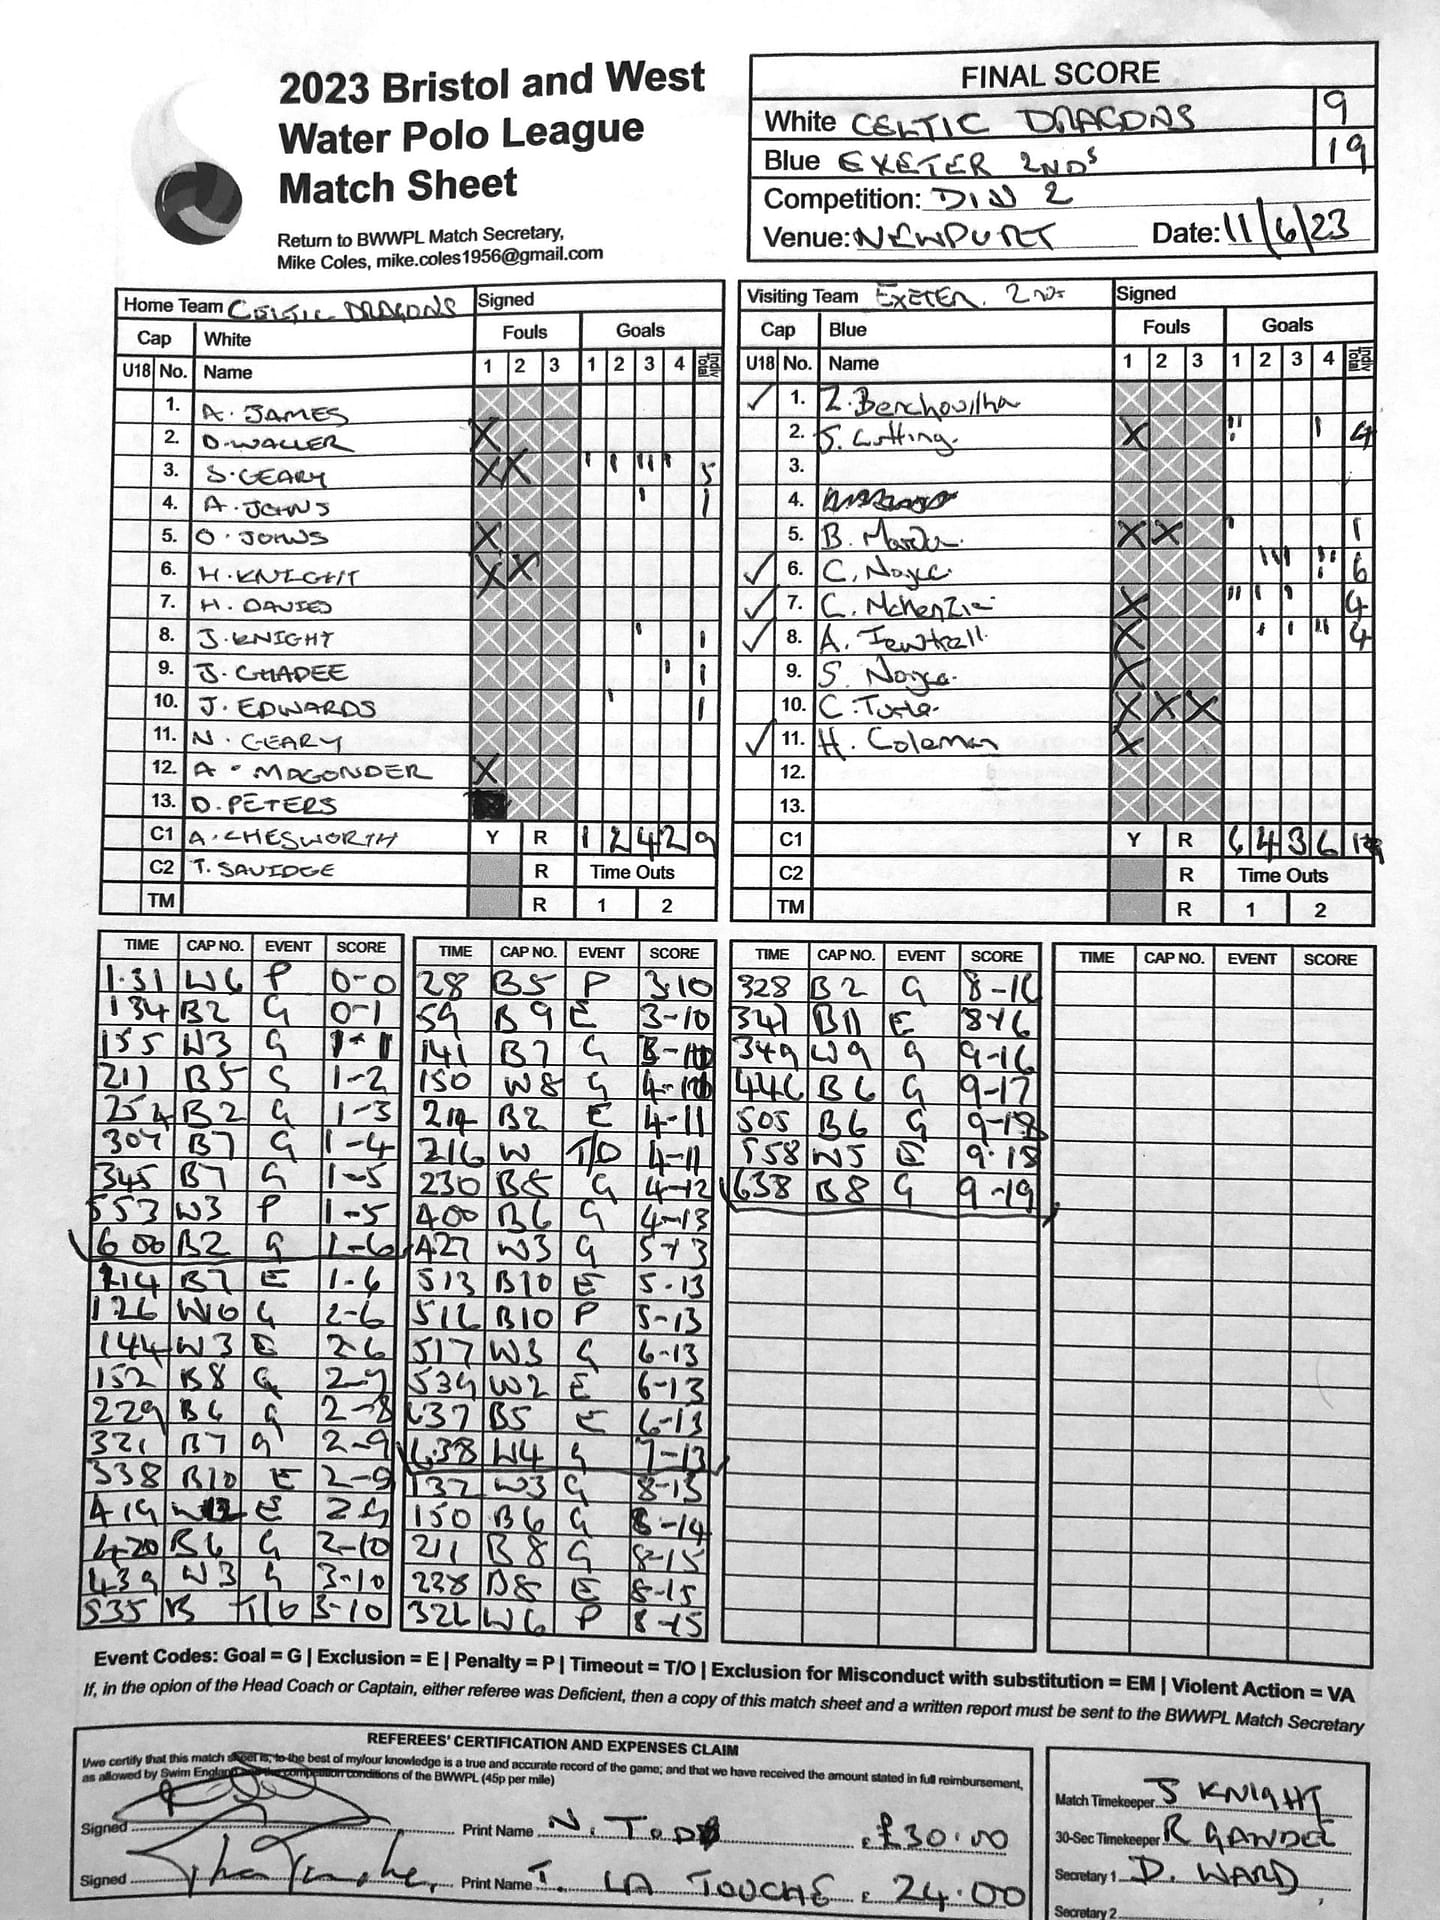 2023 Bristol and West
Water Polo League
Match Sheet
Return to BWWPL Match Secretary,
Mike Coles, mike.coles1956@gmail.com
FINAL SCORE
White CELTIC DRAGONS 9
Blue EXETER 2NDS 19
Competition: DIV 2
Venue: NEWPORT Date: 11/6/23
Home Team CELTIC DRAGONS Signed
Cap White Fouls Goals
U18 No. Name 1 2 3 1 2 3 4 Indiv Total
1. A. JAMES
2. D. WALLER X
3. S. GEARY X X ' ' ''' ' 5
4. A. JOHNS ' 1
5. O. JOHNS X
6. H. KNIGHT X X
7. H. DAVIES
8. J. KNIGHT ' 1
9. J. CHADEE ' 1
10. J. EDWARDS ' 1
11. N. GEARY
12. A. MAGONDER X
13. D. PETERS
C1 A. CHESWORTH Y R 1 2 4 2 9
C2 T. SAVIDGE R Time Outs
TM R 1 2
Visiting Team EXETER 2nds Signed
Cap Blue Fouls Goals
U18 No. Name 1 2 3 1 2 3 4 Indiv Total
✓ 1. Z. Benchouiha
2. S. Cutting X ''' ' 4
3.
4.
5. B. X X ' 1
✓ 6. C. Noyce ''' ''' 6
✓ 7. C. McKenzie X '' ' ' 4
✓ 8. A. Tewtrell X ' ' '' 4
9. S. Noyce X
10. C. Turle X X X
✓ 11. H. Coleman X
12.
13.
C1 Y R 6 4 3 6 19
C2 R Time Outs
TM R 1 2
TIME CAP NO. EVENT SCORE
1.31 W6 P 0-0
134 B2 G 0-1
155 W3 G 1-1
211 B5 G 1-2
254 B2 G 1-3
307 B7 G 1-4
345 B7 G 1-5
553 W3 P 1-5
600 B2 G 1-6
114 B7 E 1-6
126 W10 G 2-6
144 W3 E 2-6
152 B8 G 2-7
229 B6 G 2-8
321 B7 G 2-9
338 B10 E 2-9
419 W12 E 2-9
420 B6 G 2-10
439 W3 G 3-10
535 B T/O 3-10
TIME CAP NO. EVENT SCORE
28 B5 P 3.10
59 B9 E 3-10
141 B7 G
150 W8 G
214 B2 E 4-11
216 W T/O 4-11
230 B8 G 4-12
400 B6 G 4-13
427 W3 G 5-13
513 B10 E 5-13
516 B10 P 5-13
517 W3 G 6-13
539 W2 E 6-13
637 B5 E 6-13
638 W4 G 7-13
137 W3 G 8-13
150 B6 G 8-14
211 B8 G 8-15
238 B8 E 8-15
326 W6 P 8-15
TIME CAP NO. EVENT SCORE
328 B2 G 8-16
341 B11 E 8-16
349 W9 G 9-16
446 B6 G 9-17
505 B6 G 9-18
558 W5 E 9-18
638 B8 G 9-19
TIME CAP NO. EVENT SCORE
Event Codes: Goal = G | Exclusion = E | Penalty = P | Timeout = T/O | Exclusion for Misconduct with substitution = EM | Violent Action = VA
If, in the opion of the Head Coach or Captain, either referee was Deficient, then a copy of this match sheet and a written report must be sent to the BWWPL Match Secretary
REFEREES' CERTIFICATION AND EXPENSES CLAIM
I/we certify that this match sheet is, to the best of my/our knowledge is a true and accurate record of the game; and that we have received the amount stated in full reimbursement,
as allowed by Swim England and the competition conditions of the BWWPL (45p per mile)
Signed Print Name N. TODD £ £30.00
Signed Print Name T. LA TOUCHE £ 24.00
Match Timekeeper J KNIGHT
30-Sec Timekeeper R GANDEE
Secretary 1 D. WARD
Secretary 2